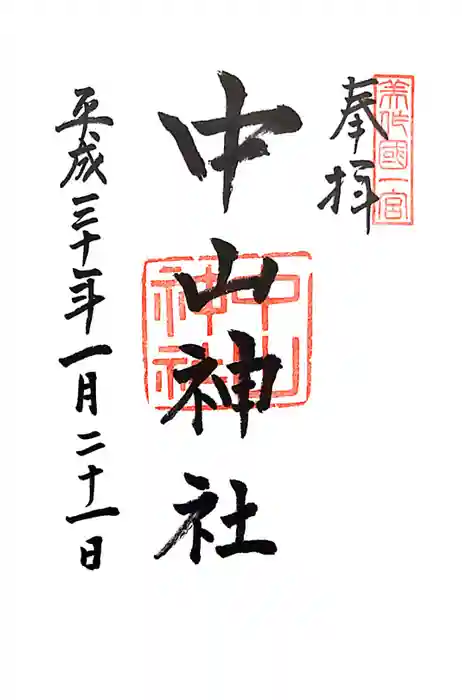 美作國一宮
奉拝
中山神社
中山神社
平成三十年一月二十一日